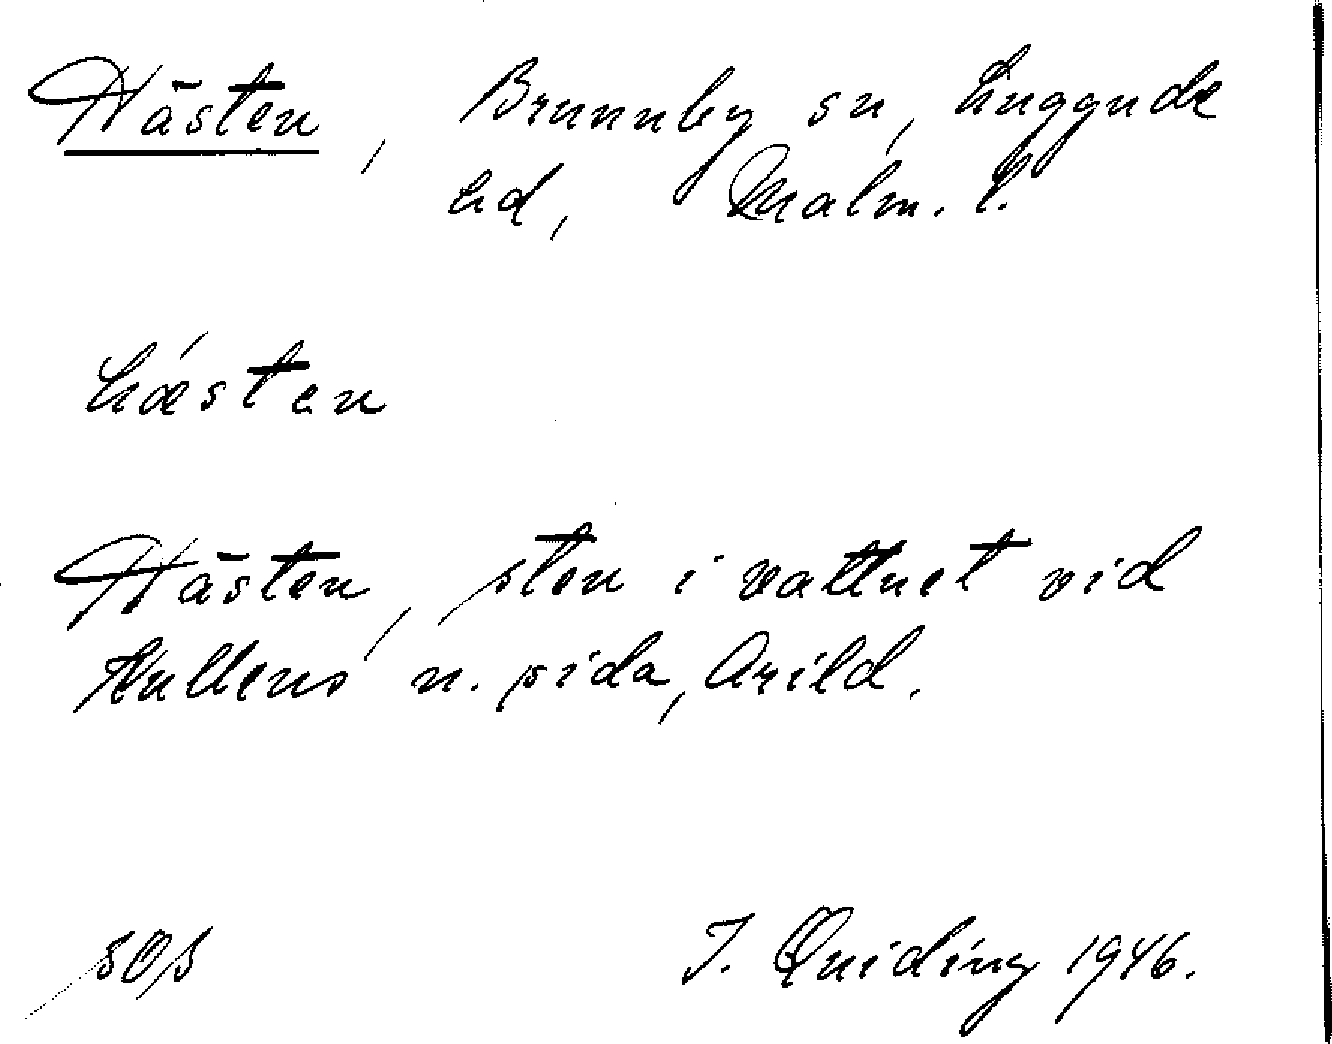 Hästen, Brunnby sn, Luggude
hd, Malm. l.
hæ´sten
Hästen, sten i vattnet vid
Kullens n. sida, Arild.
SOS J. Quiding 1946.